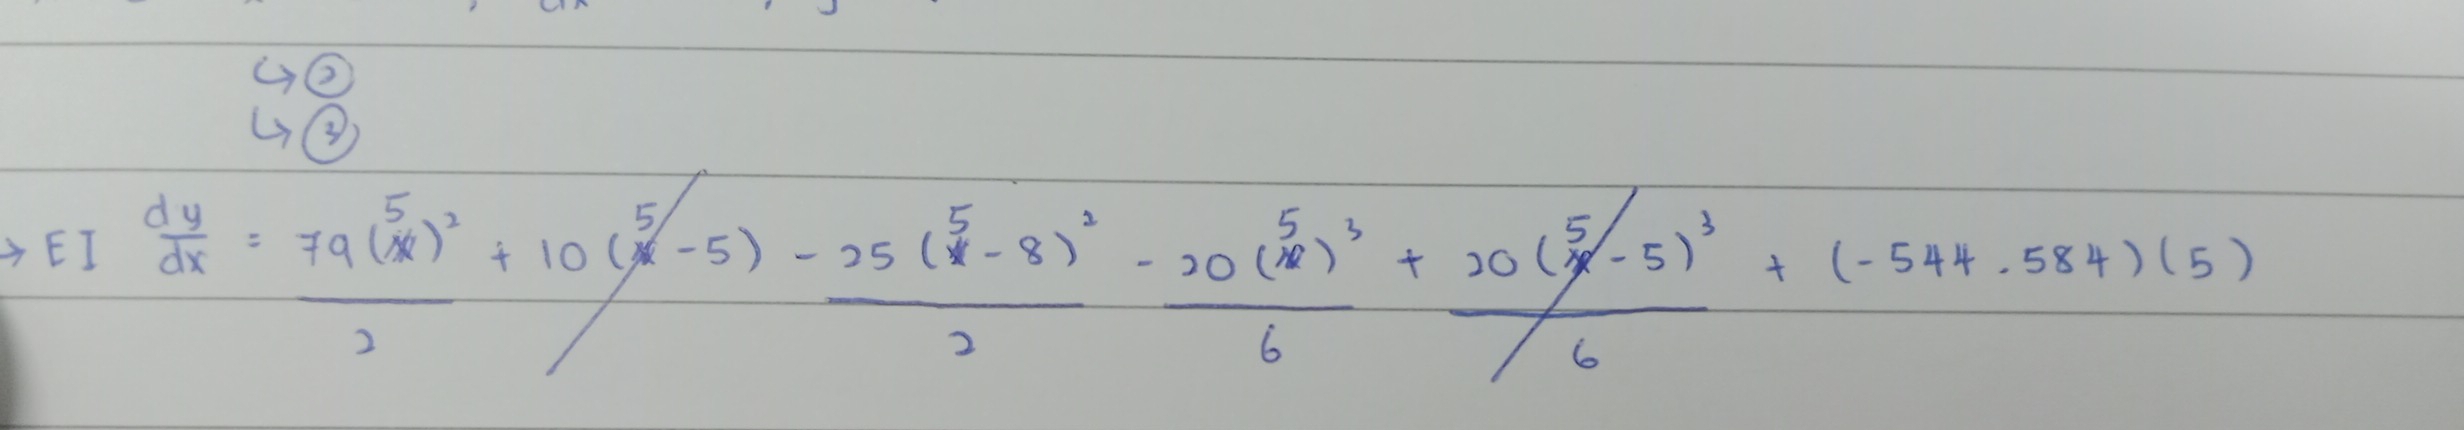 ↳ ②
↳ ③
→ EI dy/dx = 79(5)²/2 + 10(5-5) - 25(5-8)²/2 - 20(5)³/6 + 20(5-5)³/6 + (-544.584)(5)